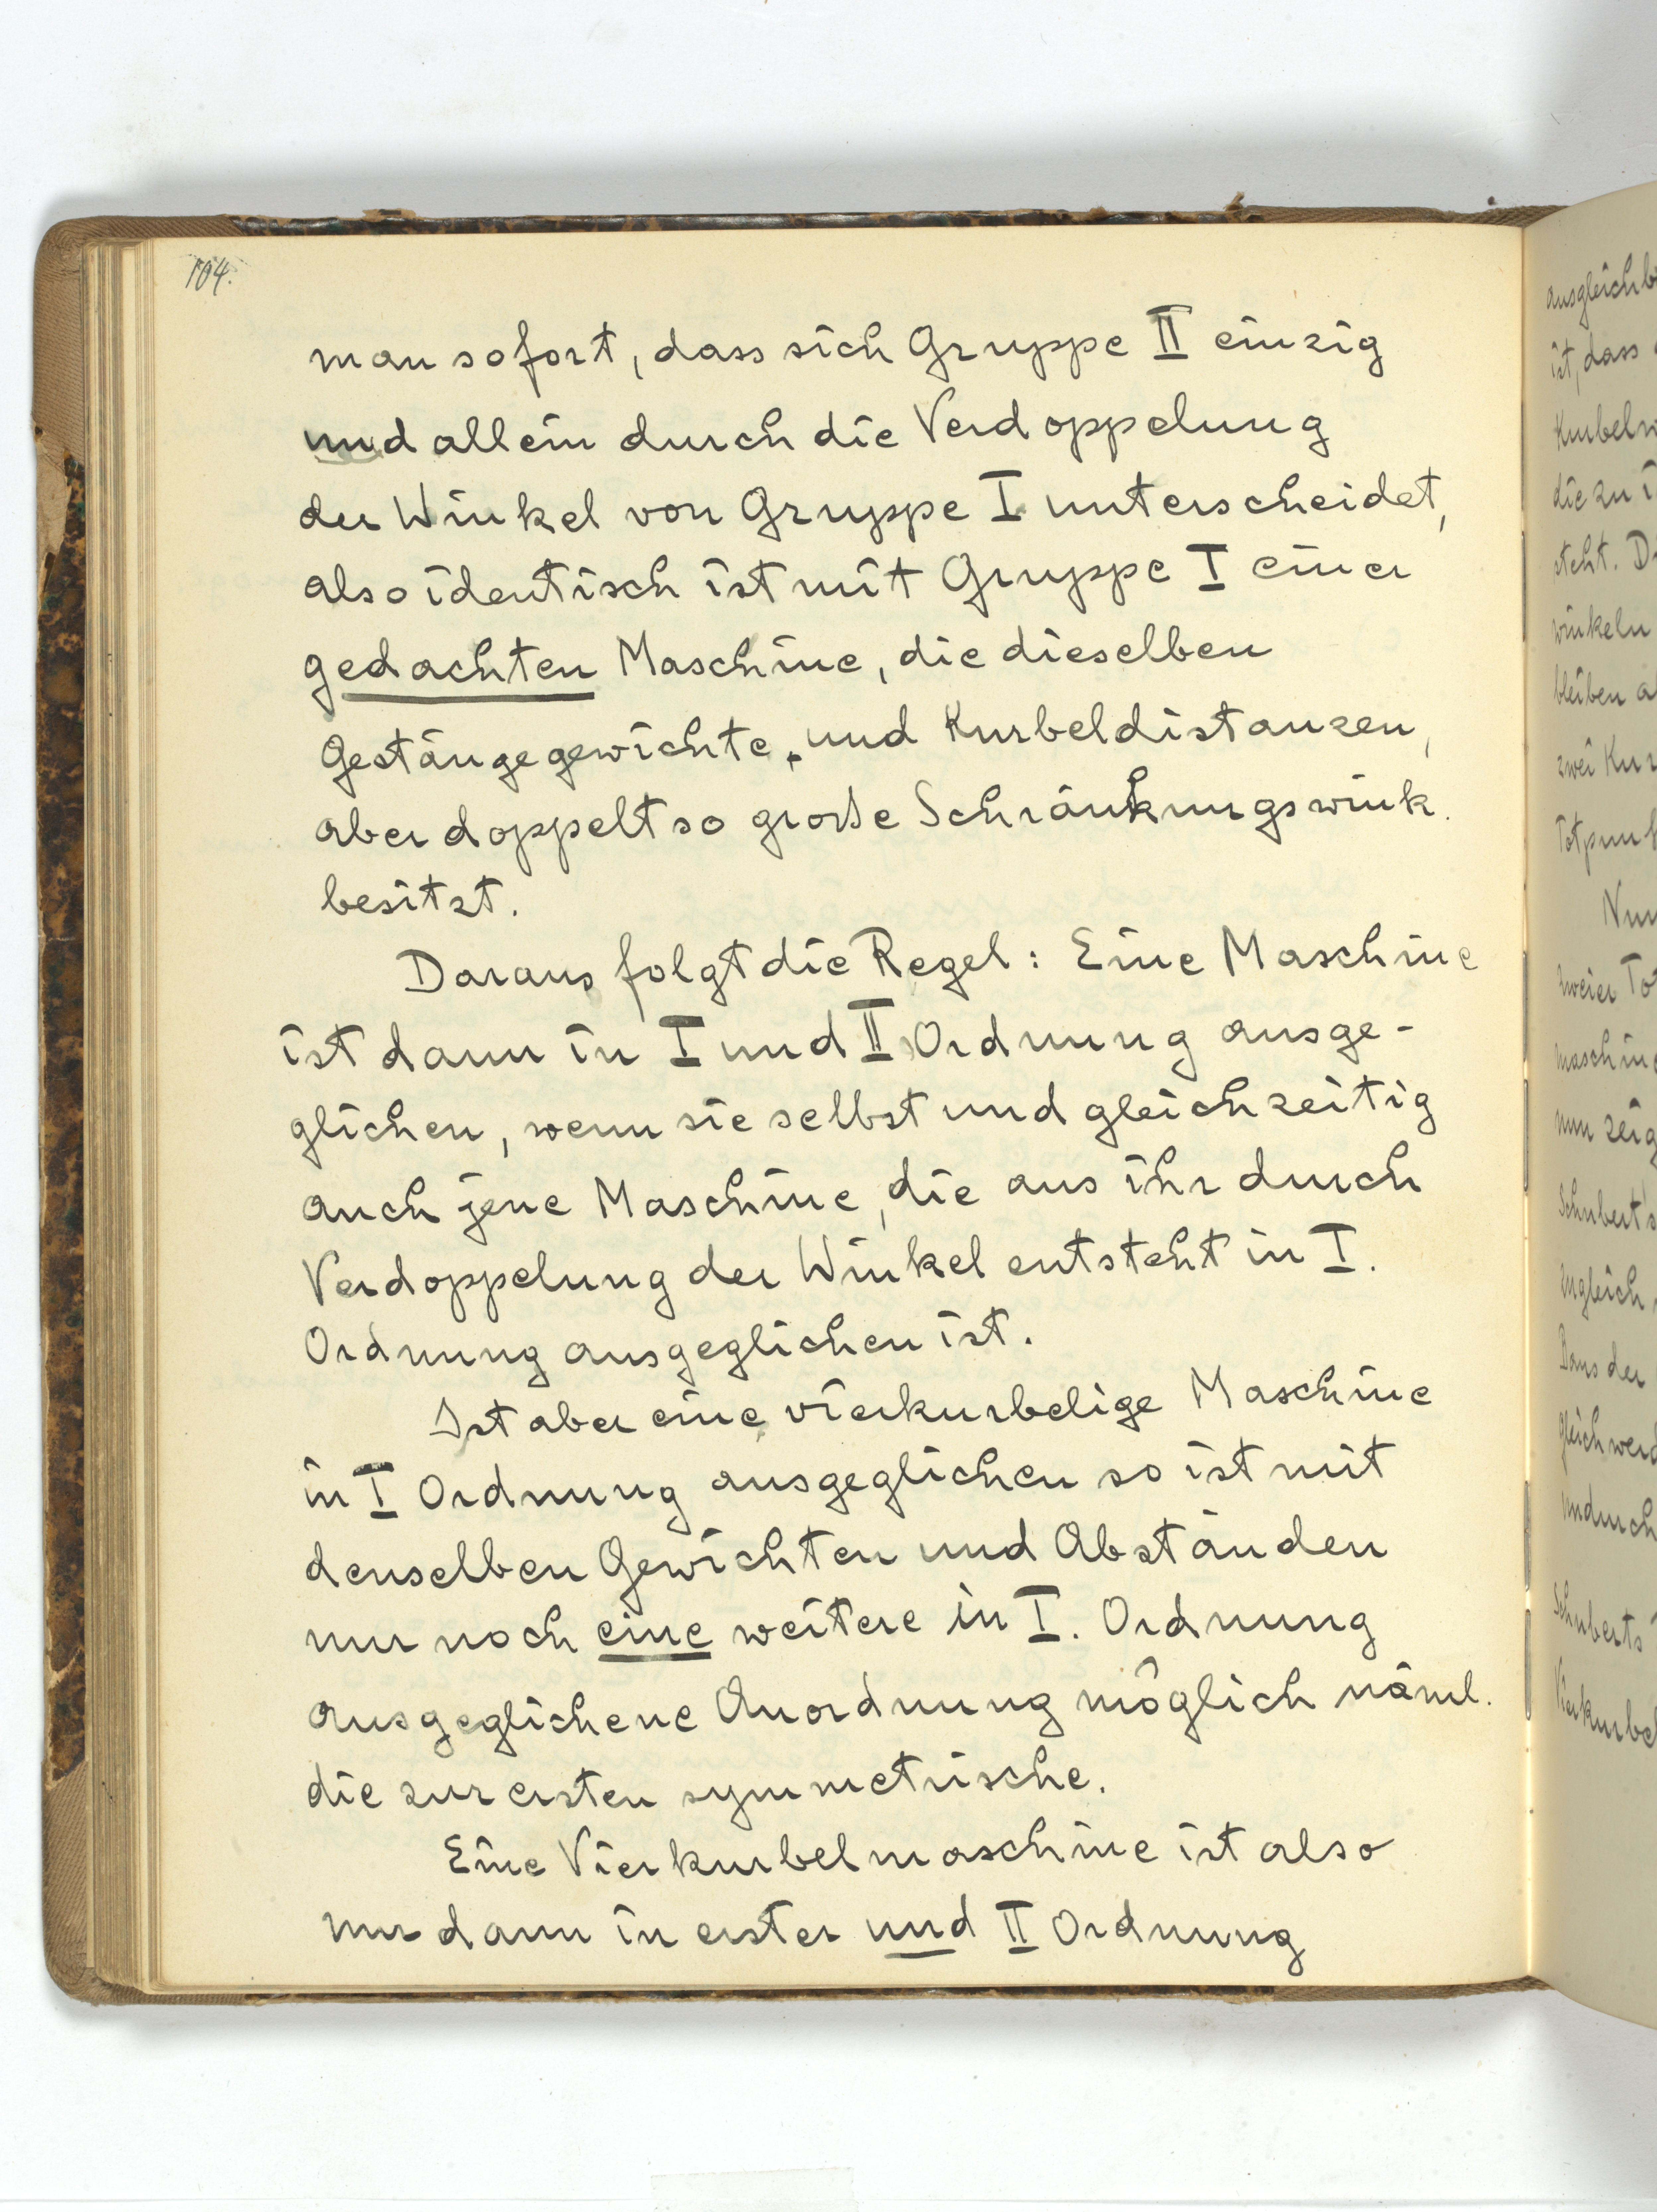 104.
man sofort, dass sich Gruppe II einzig
und allein durch die Verdoppelung
der Winkel von Gruppe I unterscheidet,
also identisch ist mit Gruppe I einer
gedachten Maschine, die dieselben
Gestängegewichte, und Kurbeldistanzen,
aber doppelt so große Schränkungswink.
besitzt.
Daraus folgt die Regel: Eine Maschine
ist dann in I und II Ordnung ausge-
glichen, wenn sie selbst und gleichzeitig
auch jene Maschine, die aus ihr durch
Verdoppelung der Winkel entsteht in I.
Ordnung ausgeglichen ist.
Ist aber eine vierkurbelige Maschine
in I Ordnung ausgeglichen so ist mit
denselben Gewichten und Abständen
nur noch eine weitere in I. Ordnung
ausgeglichene Anordnung möglich näml.
die zur ersten symmetrische.
Eine Vierkurbelmaschine ist also
nur dann in erster und II Ordnung
ist, dass
die zu
steht.
winkeln
bleiben
zwei
zweier
nun
Schubert's
der
Schuberts